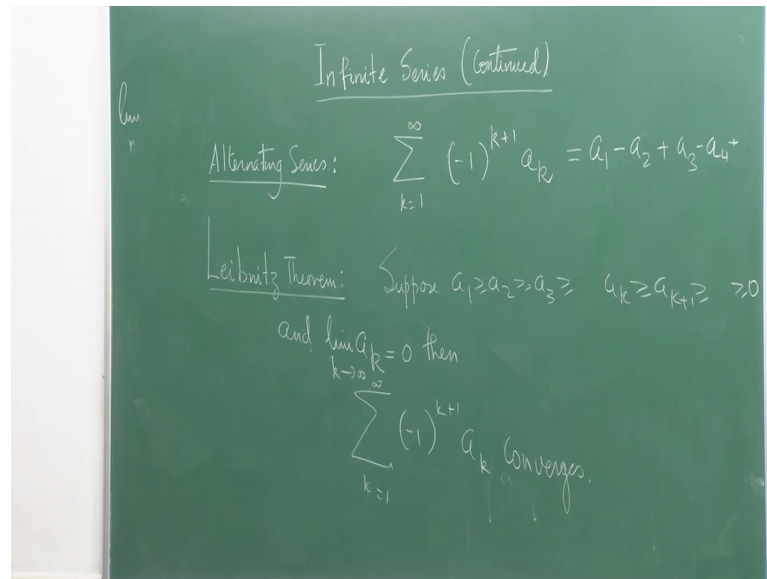 Infinite Series (Continued)
lim
n
Alternating Series: ∑_{k=1}^{∞} (-1)^{k+1} a_k = a_1 - a_2 + a_3 - a_4 +
Leibnitz Theorem: Suppose a_1 ≥ a_2 ≥ a_3 ≥ a_k ≥ a_{k+1} ≥ ≥ 0
and lim_{k→∞} a_k = 0 then
∑_{k=1}^{∞} (-1)^{k+1} a_k converges.